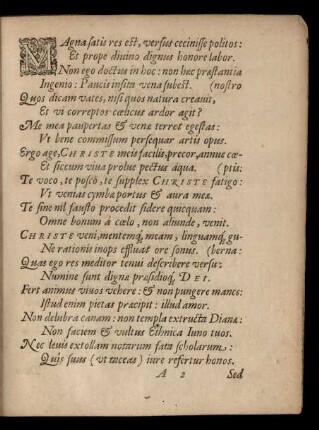 MAgna satis res est, versus cecinisse politos:
Et prope diuino dignus honore labor.
Non ego doctus in hoc: non hæc præstantia
Ingenio: Paucis insita vena subest. (nostro
Quos dicam vates, nisi quos natura creauit,
Et vi correptos cœlicus ardor agit?
Me mea paupertas & venæ terret egestas:
Vt bene commissum persequar artis opus.
Ergo age, CHRISTE meis facilis, precor, annue cœ-
Et siccum viua prolue pectus aqua. (ptis:
Te voco, te posco, te supplex CHRISTE fatigo:
Vt venias cymbæ portus & aura meæ.
Te sine nil fausto procedit sidere quicquam:
Omne bonum à cœlo, non aliunde, venit.
CHRISTE veni, mentemq́, meam, linguamq́, gu-
Ne rationis inops effluat ore sonus. (berna:
Quas ego res meditor tenui describere versu:
Numine sunt digna præsidioq́, DEI.
Fert animus viuos vehere: & non pungere manes:
Istud enim pietas præcipit: illud amor.
Non delubra canam: non templa extructa Dianæ:
Non faciem & vultus Ethnica Iuno tuos.
Nec leuis extollam notarum fata scholarum:
Quis suus (vt taceas) iure refertur honos.
A 2 Sed